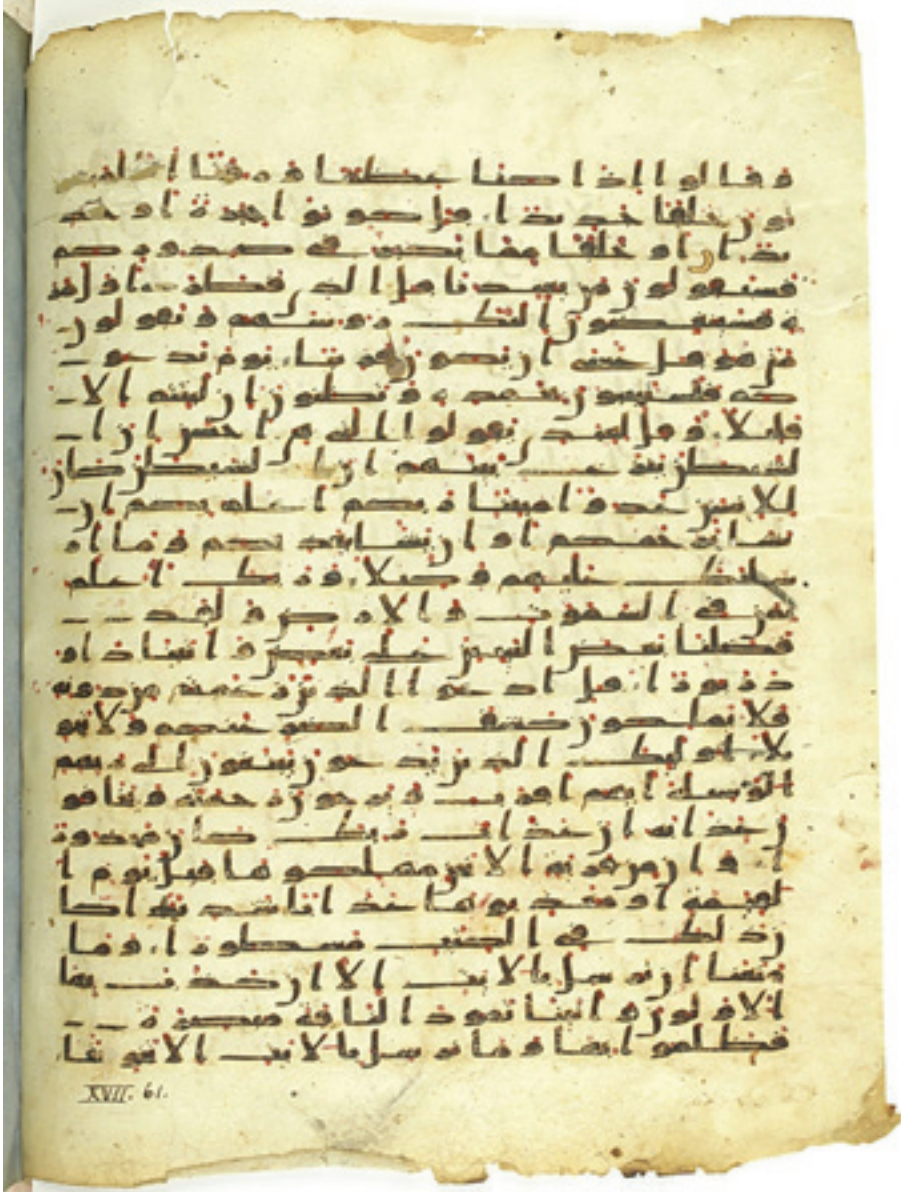 وقالوا اذا كنا عظما ورفتا انا لمبعو
ثون خلقا جديدا قل كونوا حجرة او حد
يدا او خلقا مما يكبر في صدوركم
فسيقولون من يعيدنا قل الذي فطركم اول مر
ة فسينغضون اليك روسهم ويقولون
متى هو قل عسى ان يكون قريبا يوم يدعو
كم فتستجيبون بحمده وتظنون ان لبثتم الا
قليلا وقل لعبادي يقولوا التي هي احسن ان ا
لشيطن ينزغ بينهم ان الشيطن كان
للانسن عدوا مبينا ربكم اعلم بكم ان
يشا يرحمكم او ان يشا يعذبكم وما ار
سلنك عليهم وكيلا وربك اعلم
بمن في السموت والارض ولقد
فضلنا بعض النبين على بعض واتينا داو
د زبورا قل ادعوا الذين زعمتم من دونه
فلا يملكون كشف الضر عنكم ولا تحو
يلا اوليك الذين يدعون يبتغون الى ربهم
الوسيلة ايهم اقرب ويرجون رحمته ويخافو
ن عذابه ان عذاب ربك كان محذور
ا وان من قرية الا نحن مهلكوها قبل يوم ا
لقيمة او معذبوها عذابا شديدا كا
ن ذلك في الكتب مسطورا وما
منعنا ان نرسل بالايت الا ان كذب بها
الاولون واتينا ثمود الناقة مبصرة
فظلموا بها وما نرسل بالايت الا تخويفا
XVII. 61.